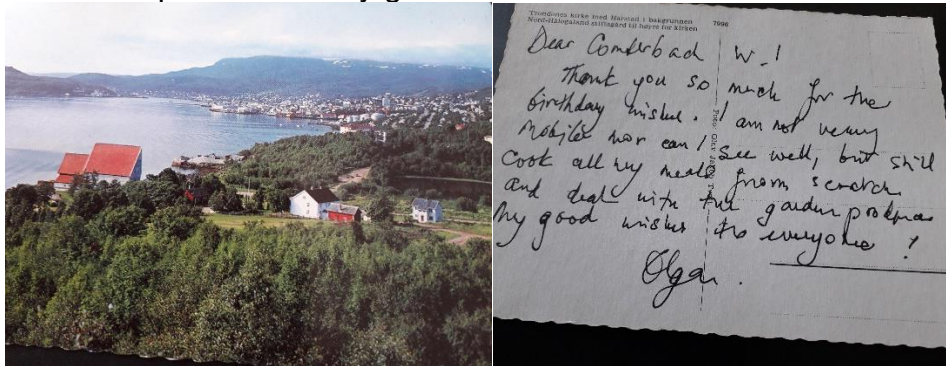 Trondenes kirke med Harstad i bakgrunnen
Nord-Hålogaland stiftsgård til høyre for kirken
7996
Dear Comberbach W.I
Thank you so much for the
birthday wishes. I am not very
mobile nor can I see well, but still
cook all my meals from scratch
and deal with the garden produce
My good wishes to everyone!
Olga.